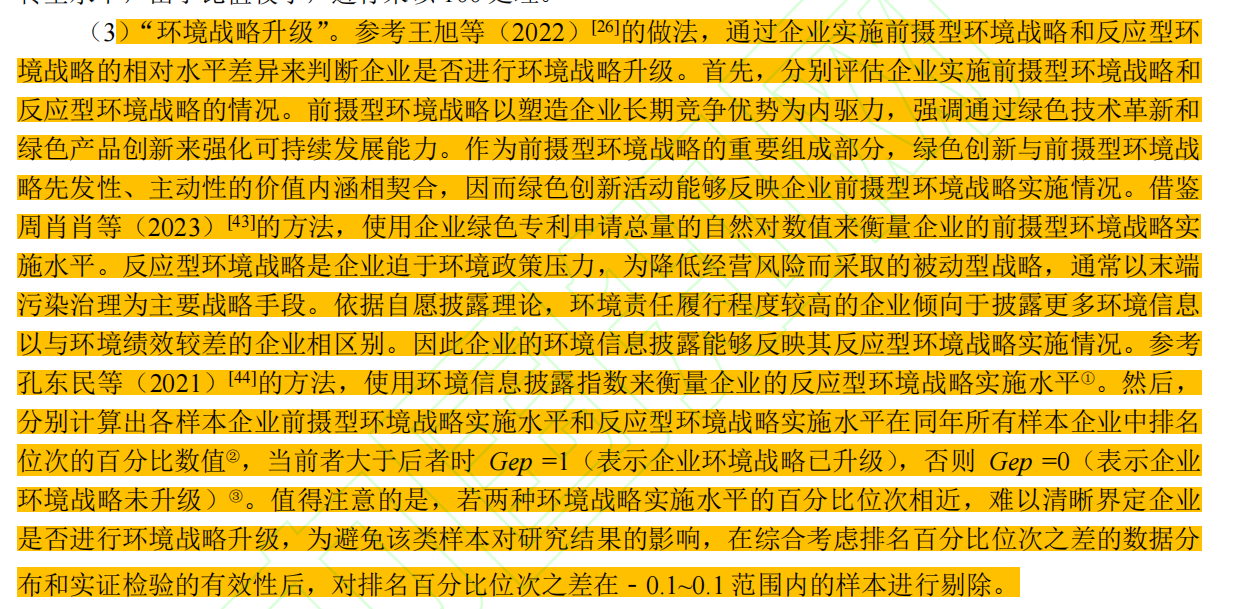 （3）“环境战略升级”。参考王旭等（2022）[26]的做法，通过企业实施前摄型环境战略和反应型环
境战略的相对水平差异来判断企业是否进行环境战略升级。首先，分别评估企业实施前摄型环境战略和
反应型环境战略的情况。前摄型环境战略以塑造企业长期竞争优势为内驱力，强调通过绿色技术革新和
绿色产品创新来强化可持续发展能力。作为前摄型环境战略的重要组成部分，绿色创新与前摄型环境战
略先发性、主动性的价值内涵相契合，因而绿色创新活动能够反映企业前摄型环境战略实施情况。借鉴
周肖肖等（2023）[43]的方法，使用企业绿色专利申请总量的自然对数值来衡量企业的前摄型环境战略实
施水平。反应型环境战略是企业迫于环境政策压力，为降低经营风险而采取的被动型战略，通常以末端
污染治理为主要战略手段。依据自愿披露理论，环境责任履行程度较高的企业倾向于披露更多环境信息
以与环境绩效较差的企业相区别。因此企业的环境信息披露能够反映其反应型环境战略实施情况。参考
孔东民等（2021）[44]的方法，使用环境信息披露指数来衡量企业的反应型环境战略实施水平①。然后，
分别计算出各样本企业前摄型环境战略实施水平和反应型环境战略实施水平在同年所有样本企业中排名
位次的百分比数值②，当前者大于后者时 Gep =1（表示企业环境战略已升级），否则 Gep =0（表示企业
环境战略未升级）③。值得注意的是，若两种环境战略实施水平的百分比位次相近，难以清晰界定企业
是否进行环境战略升级，为避免该类样本对研究结果的影响，在综合考虑排名百分比位次之差的数据分
布和实证检验的有效性后，对排名百分比位次之差在﹣0.1~0.1 范围内的样本进行剔除。